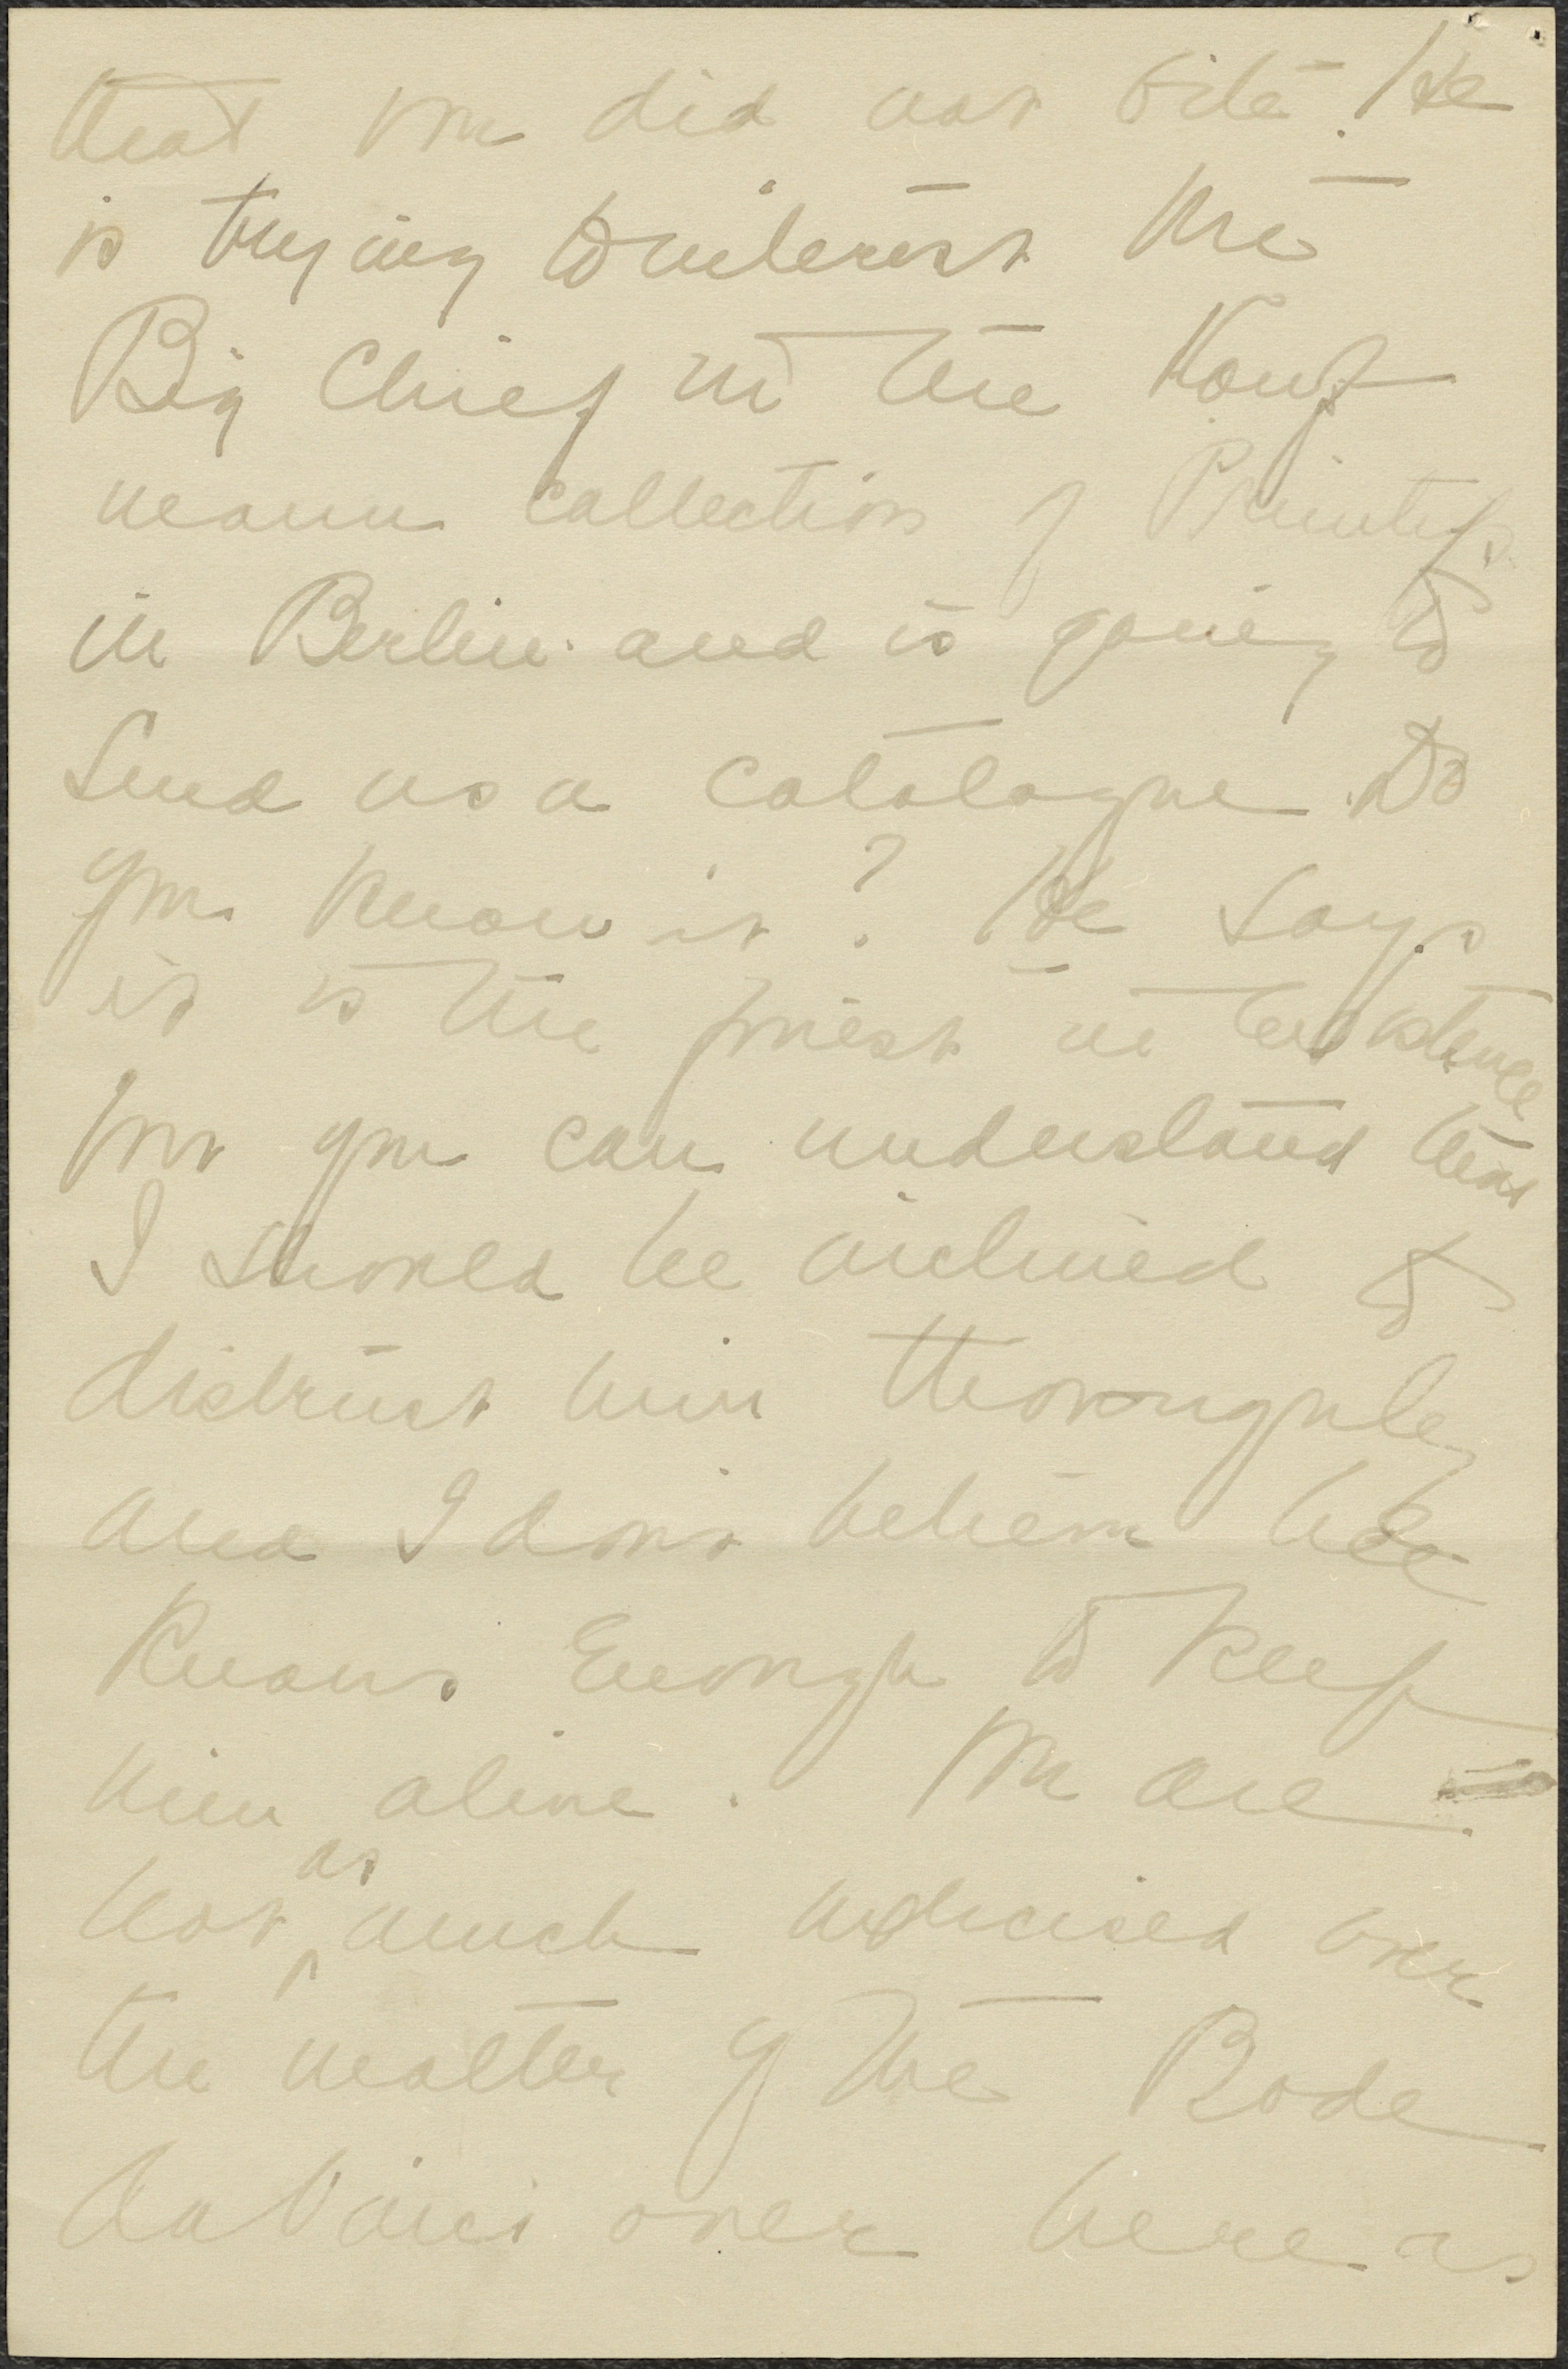 that we did not bite. He
is trying to interest the
Big Chief in the Kauf
mann collection of Primitifs
in Berlin and is going to
send us a catalogue. Do
you know it? He says
it is the finest in existence
but you can understand that
I should be inclined to
distrust him thoroughly
and I don't believe he
knows enough to keep
him alive. We are
not as much exercised over
the matter of the Bode
da Vinci over here as